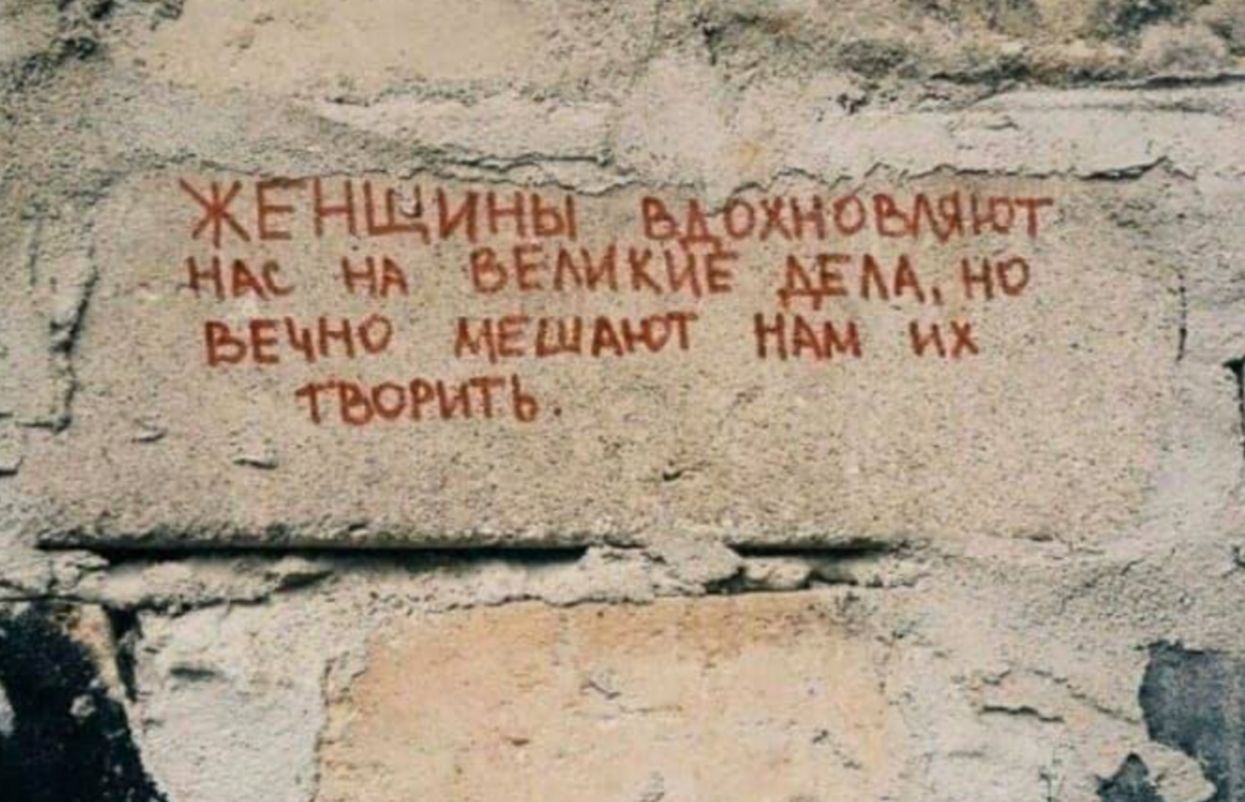 ЖЕНЩИНЫ ВДОХНОВЛЯЮТ
НАС НА ВЕЛИКИЕ ДЕЛА, НО
ВЕЧНО МЕШАЮТ НАМ ИХ
ТВОРИТЬ.